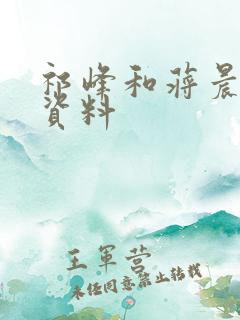 祁峰和蒋晨
资料
王军营
未经同意禁止转载